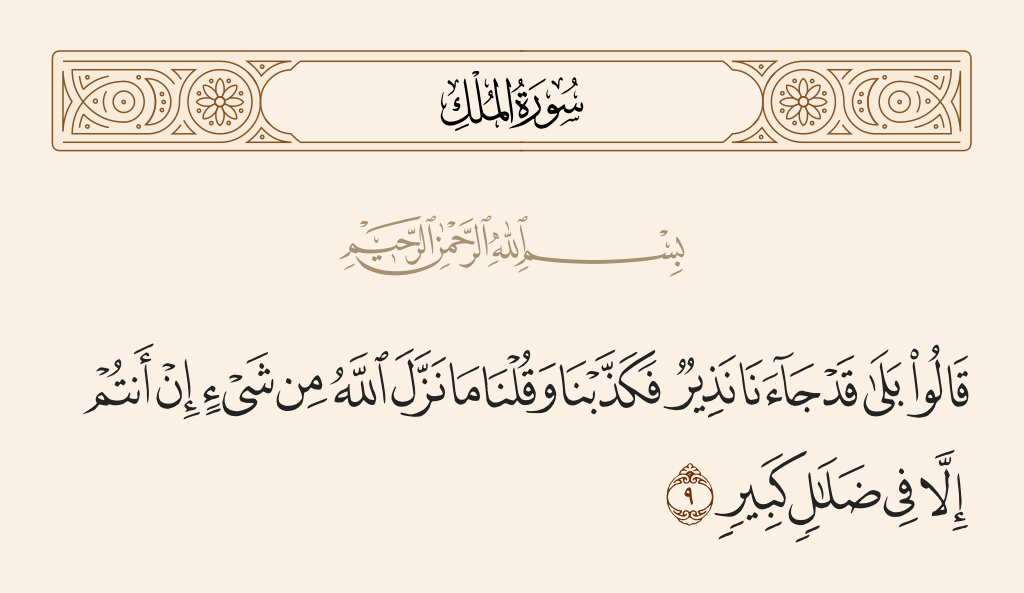 سُورَةُ المُلْكِ
بِسْمِ ٱللَّهِ ٱلرَّحْمَٰنِ ٱلرَّحِيمِ
قَالُوا۟ بَلَىٰ قَدْ جَآءَنَا نَذِيرٌ فَكَذَّبْنَا وَقُلْنَا مَا نَزَّلَ ٱللَّهُ مِن شَىْءٍ إِنْ أَنتُمْ
إِلَّا فِى ضَلَٰلٍ كَبِيرٍ ٩